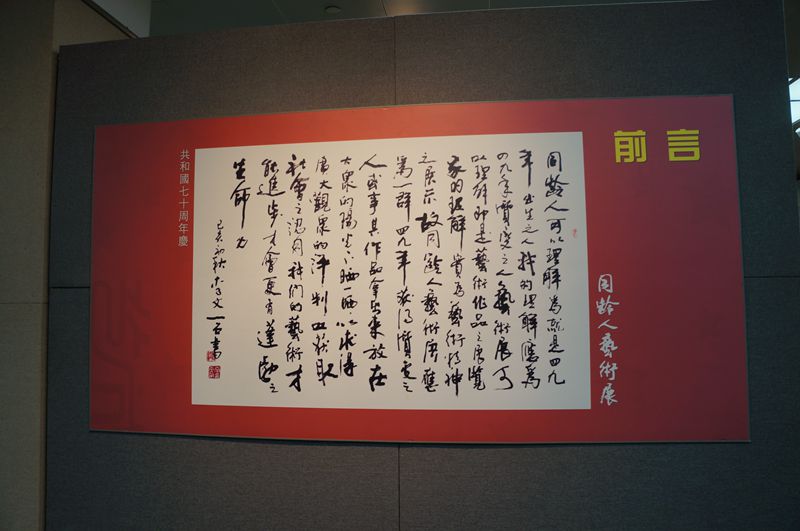 前言
同齡人藝術展
同齡人可以理解為就是四九
年出生之人我的理解應為
四九高質量之人藝術展可
以理解即是藝術作品之展覽
的理解貴為藝術精神
之展示故同齡人藝術展應
為一群四九年質高之
人或事其作品拿出來放在
大眾的陽光下晒一晒以求得
廣大觀眾的評判以获取
社會之認同我們的藝術才
能進步才會更有蓬勃之
生命力
己亥初秋文一石書
共和國七十周年慶